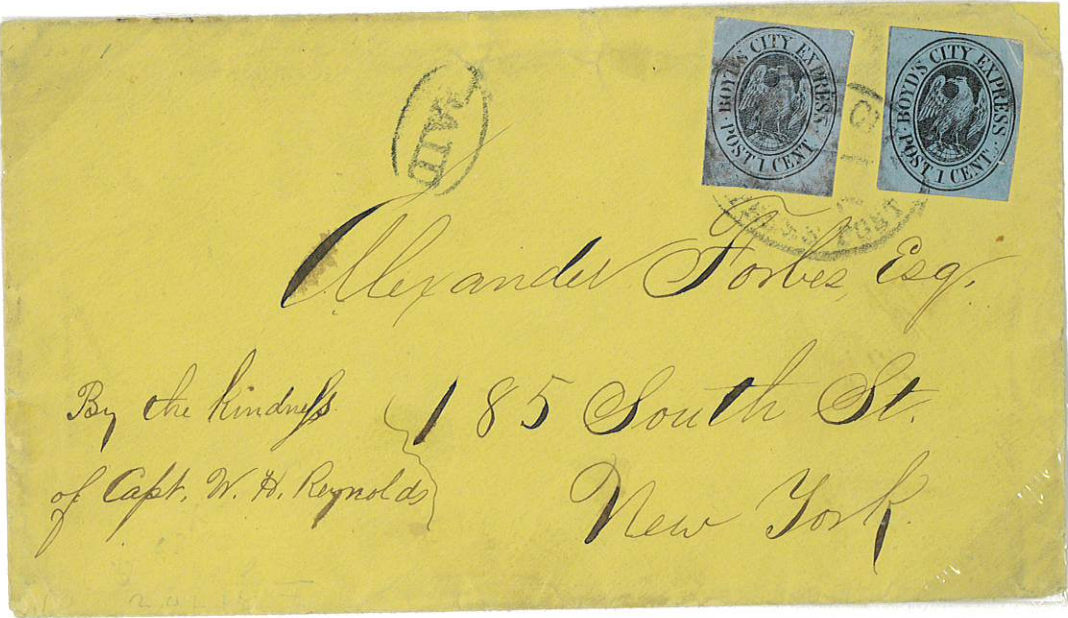 BOYD'S CITY EXPRESS
POST 1 CENT.
BOYD'S CITY EXPRESS
POST 1 CENT.
PAID
POST
Alexander Forbes, Esq.
185 South St.
New York.
By the kindness
of Capt. W. H. Reynolds